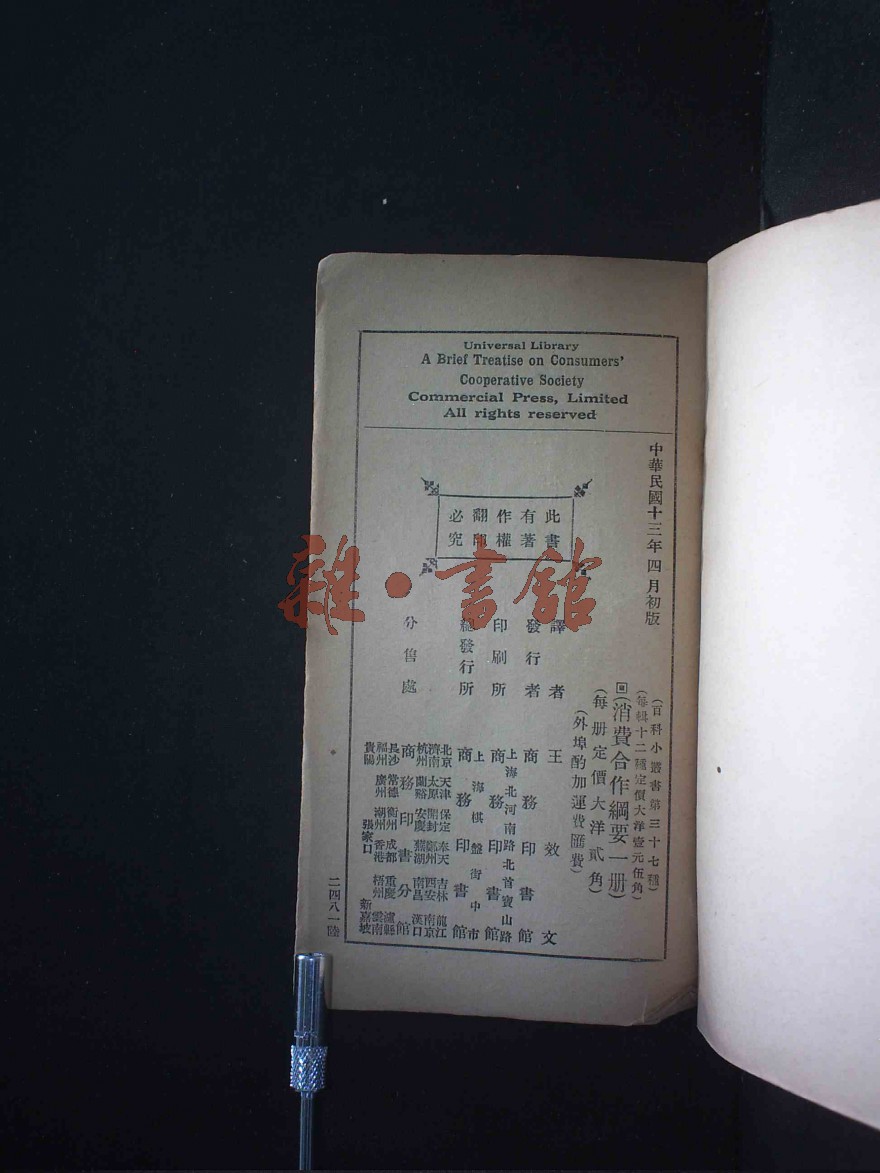 Universal Library
A Brief Treatise on Consumers'
Cooperative Society
Commercial Press, Limited
All rights reserved
中華民國十三年四月初版
此書
有著
作權
翻印
必究
(百科小叢書第三十七種)
(每輯十二種定價大洋壹元伍角)
回(消費合作綱要一册)
(每册定價大洋貳角)
(外埠酌加運費匯費)
譯者 王效文
發行者 商務印書館
上海北河南路北首寶山路
印刷所 商務印書館
上海棋盤街中市
總發行所 商務印書館
分售處
北京 天津 保定 奉天 吉林 龍江
濟南 太原 開封 鄭州 西安 南京
杭州 蘭谿 安慶 蕪湖 南昌 漢口
商務印書分館
長沙 常德 衡州 成都 重慶 瀘縣
福州 廣州 潮州 香港 梧州 雲南
貴陽 張家口 新嘉坡
二四八一陸
雜·書館